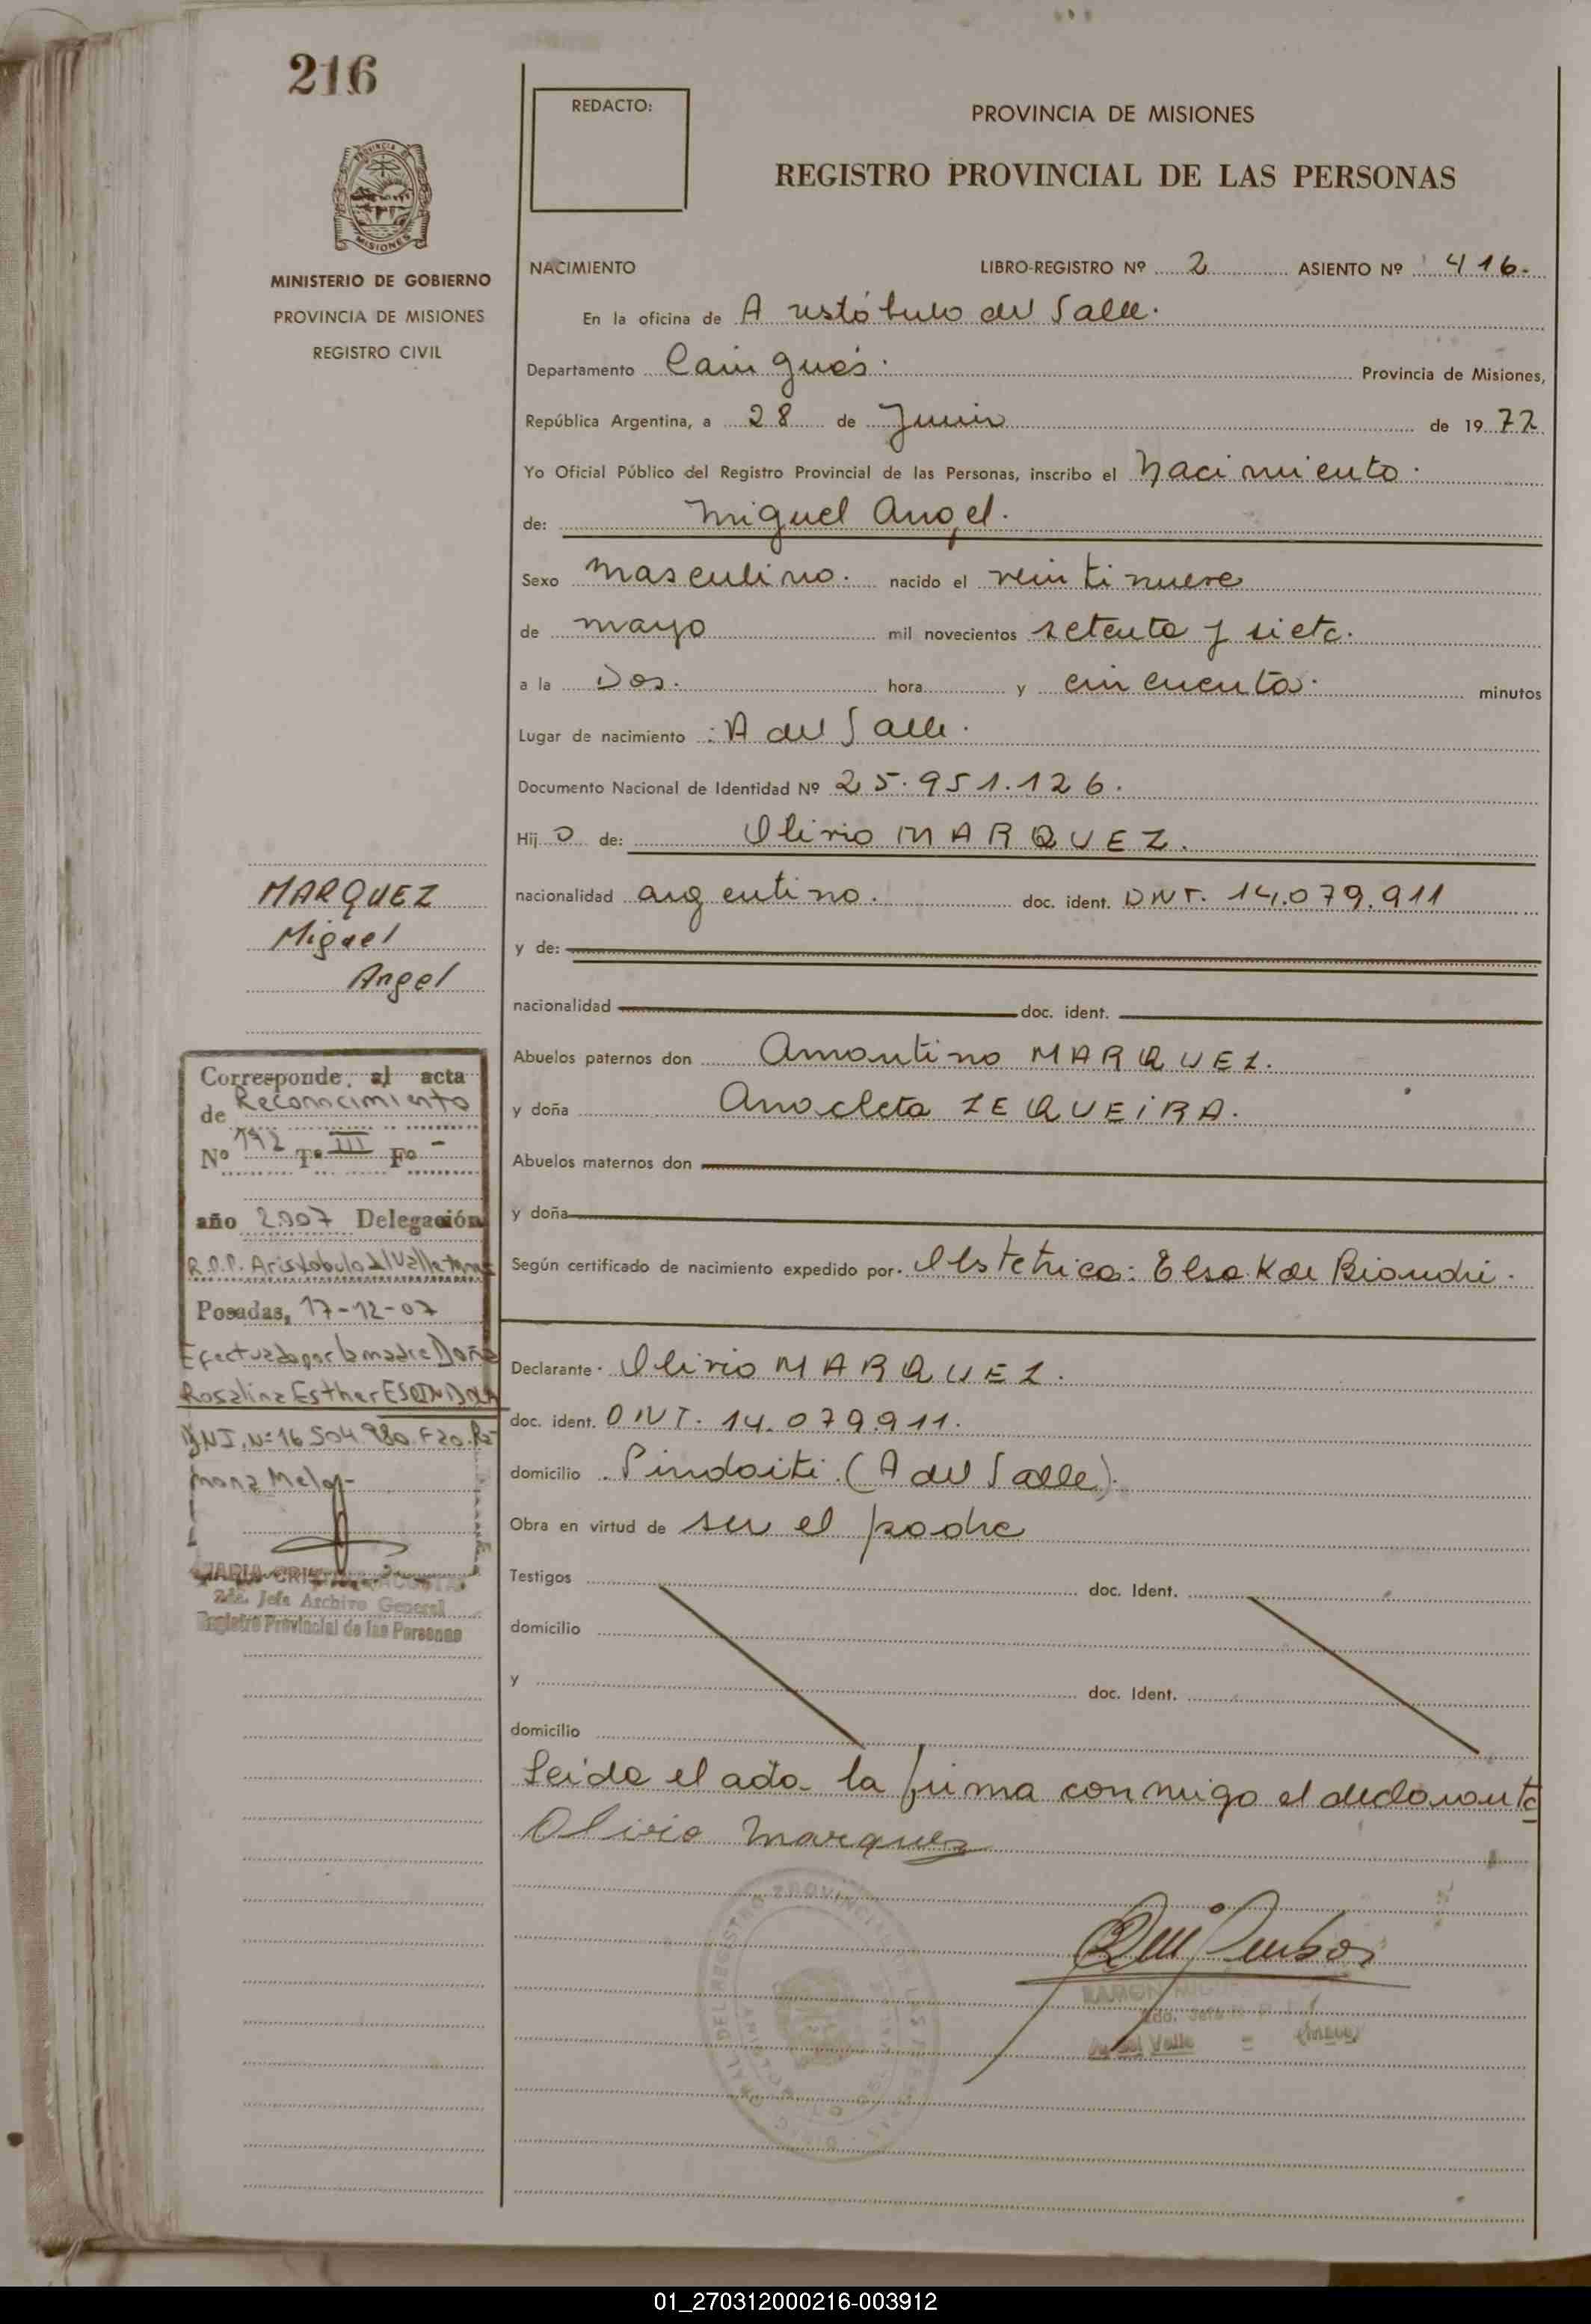 216
REDACTO:
PROVINCIA DE MISIONES
REGISTRO PROVINCIAL DE LAS PERSONAS
PROVINCIA DE
MISIONES
MINISTERIO DE GOBIERNO
PROVINCIA DE MISIONES
REGISTRO CIVIL
NACIMIENTO LIBRO-REGISTRO Nº 2 ASIENTO Nº 416.
En la oficina de Aristóbulo del Valle.
Departamento Cainguás. Provincia de Misiones,
República Argentina, a 28 de Junio de 1977
Yo Oficial Público del Registro Provincial de las Personas, inscribo el Nacimiento.
de: Miguel Angel.
Sexo masculino. nacido el veintinueve
de mayo mil novecientos setenta y siete.
a la Dos. hora y cincuenta. minutos
Lugar de nacimiento : A del Valle.
Documento Nacional de Identidad Nº 25.951.126.
Hijo de: Olivio MARQUEZ.
nacionalidad argentino. doc. ident. DNI. 14.079.911
y de:
nacionalidad doc. ident.
Abuelos paternos don Amantino MARQUEZ.
y doña Anacleta ZEQUEIRA.
Abuelos maternos don
y doña
Según certificado de nacimiento expedido por. Obstetrica: Elsa K de Biondi.
Declarante. Olivio MARQUEZ.
doc. ident. DNI. 14.079.911.
domicilio Pindaiti (A del Valle).
Obra en virtud de ser el padre
Testigos doc. Ident.
domicilio
y doc. Ident.
domicilio
Leida el acta la firma conmigo el declarante
Olivio Marquez
A. del Valle
MARQUEZ
Miguel
Angel
Corresponde al acta
de Reconocimiento
Nº 192 Tº III Fº -
año 2007 Delegación
R.P.P. Aristobulo d/Valle
Posadas, 17-12-07
Efectuado por la madre Doña
Rosalina Esther
DNI. Nº 16.504.980
MARIA CRISTINA ACOSTA
2da. Jefa Archivo General
Registro Provincial de las Personas
01_270312000216-003912